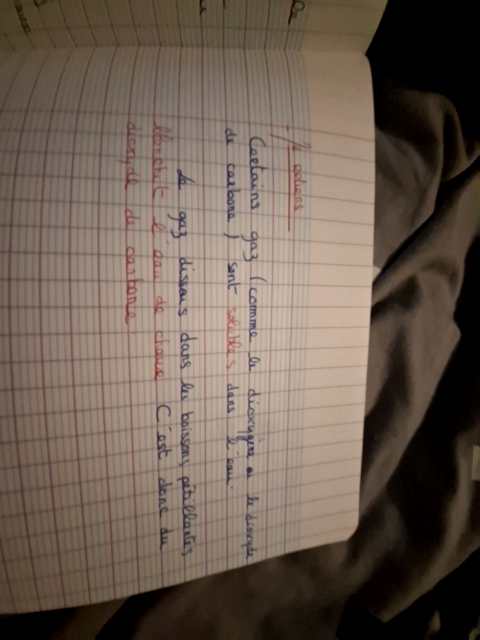 Certains gaz (comme le dioxygène ou le dioxyde
de carbone) sont solubles dans l'eau.
Le gaz dissous dans les boissons pétillantes
blanchit l'eau de chaux C'est donc du
dioxyde de carbone